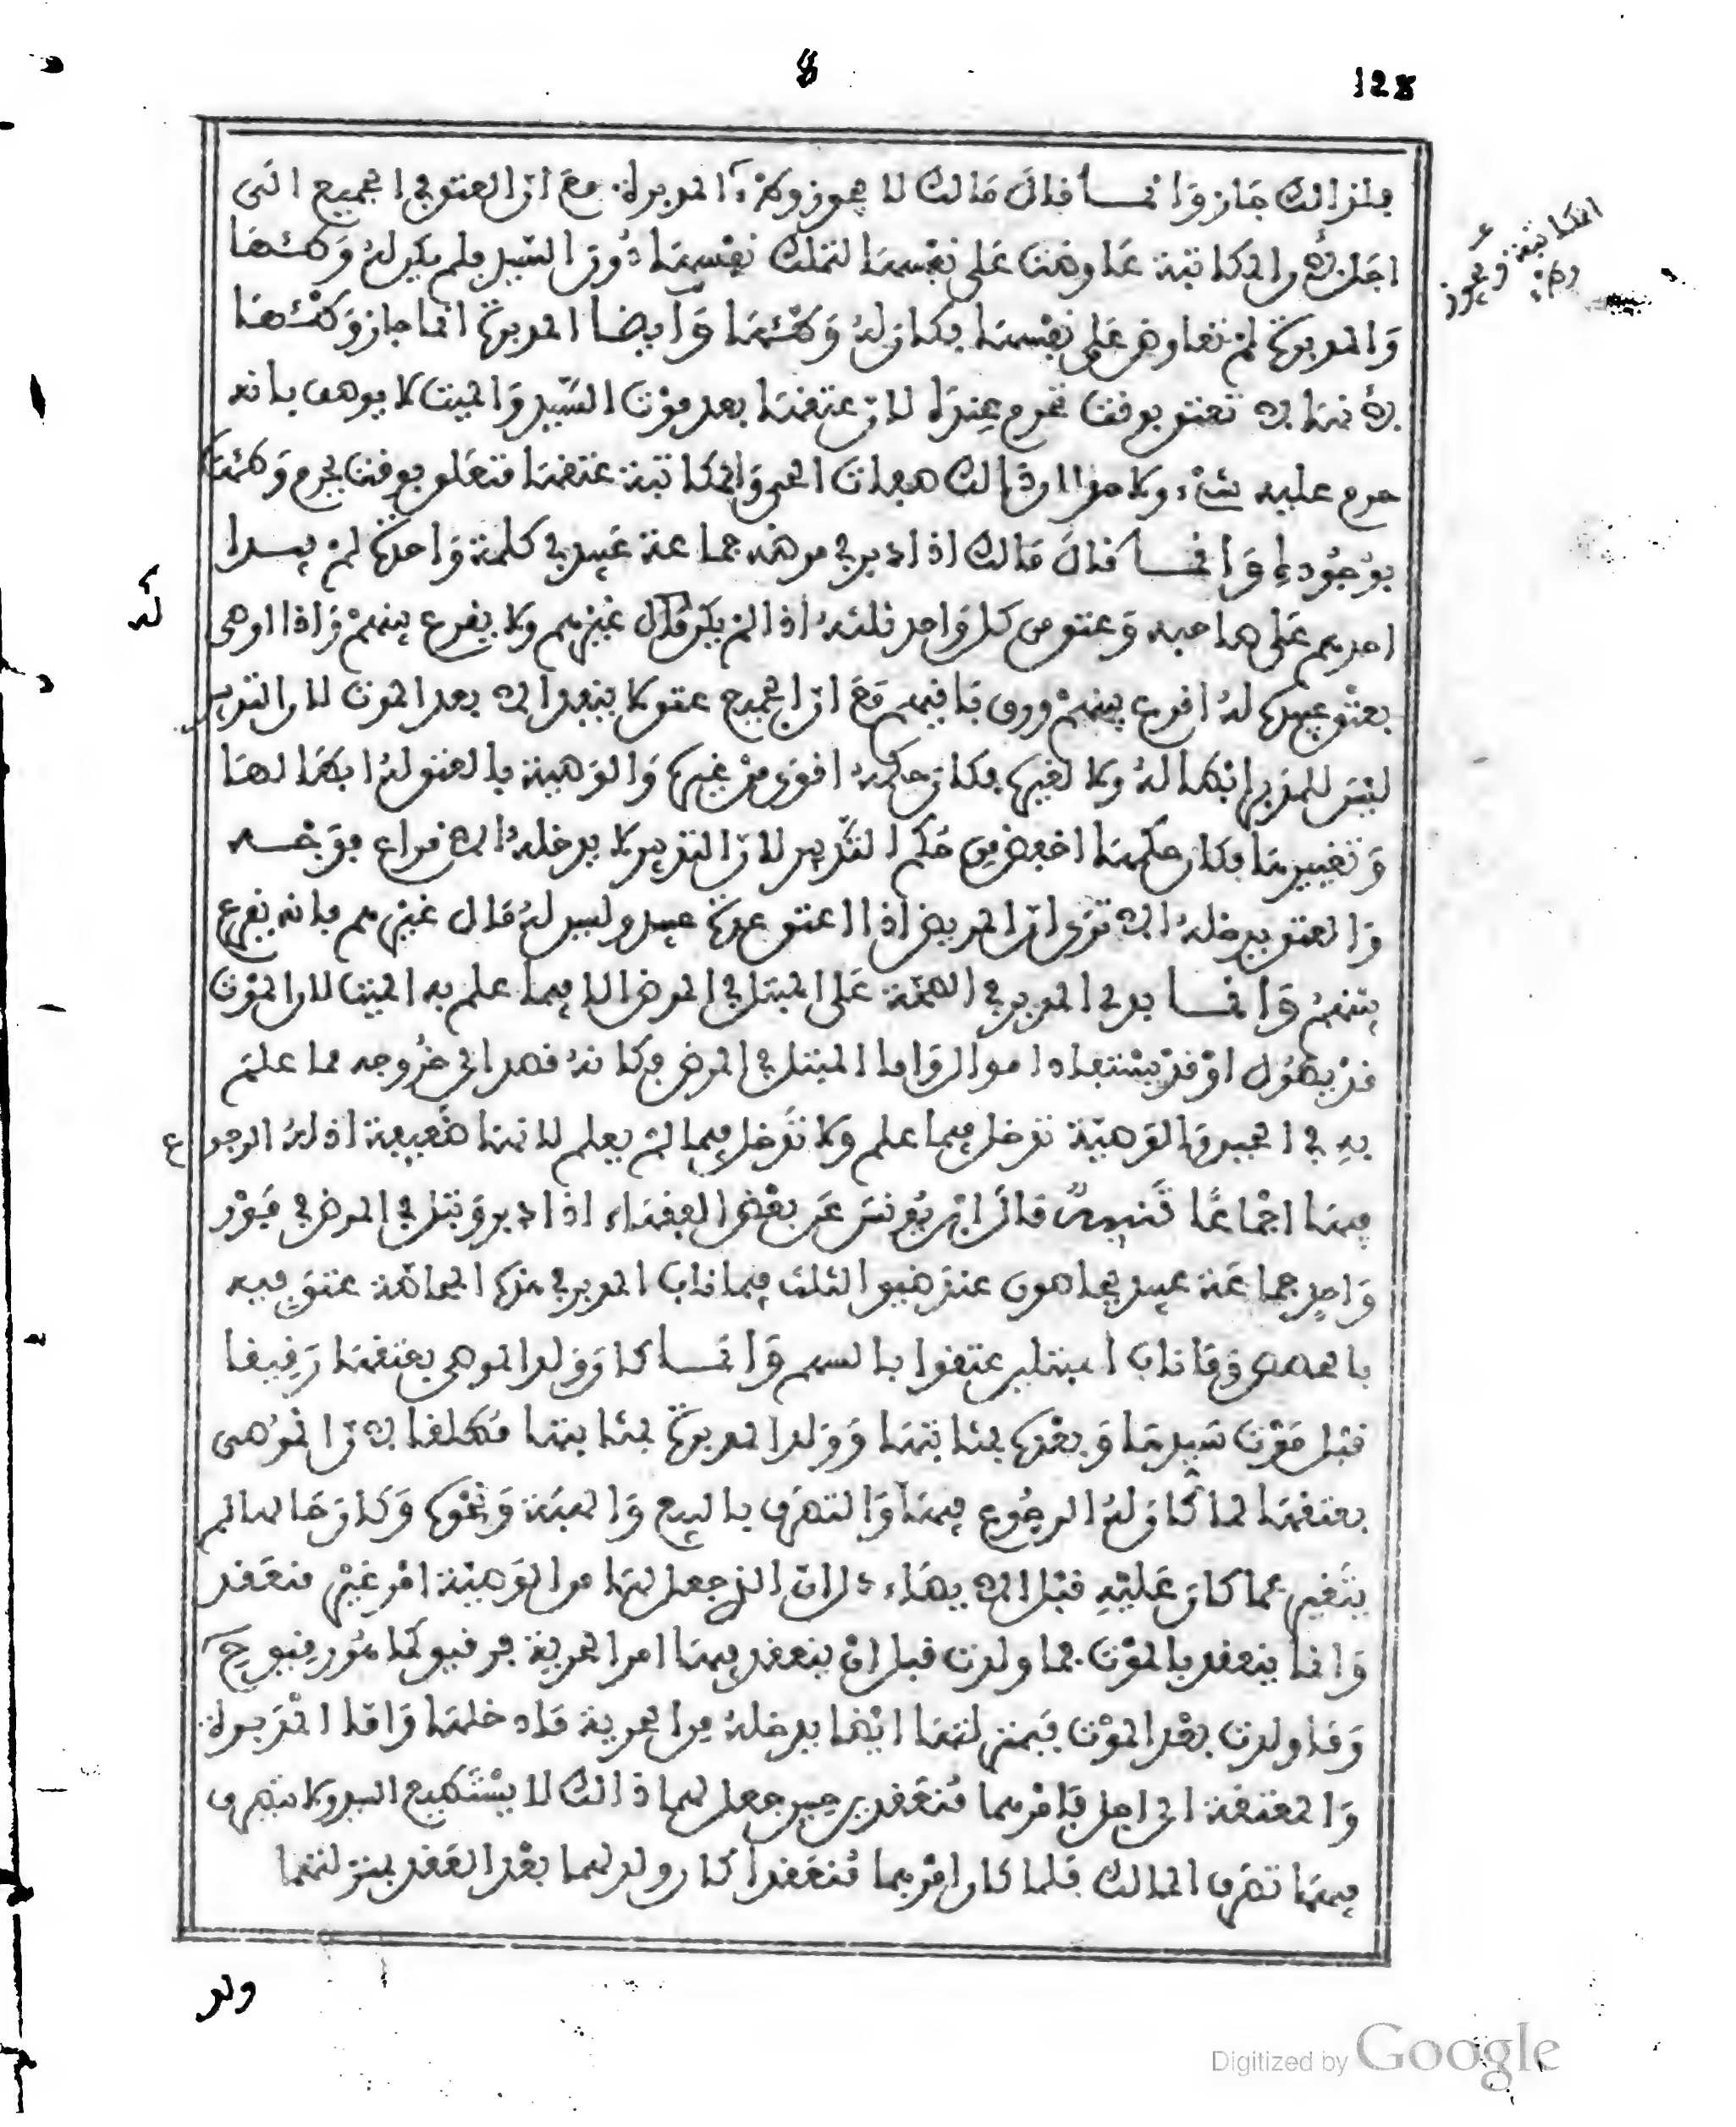 128
فلذالك جاز وانما قال مالك لا يجوز وطء المكاتبة ويجوز وطء المدبرة مع ان العتق في الجميع الى
اجل لان المكاتبة عاوضت على نفسها لتملك نفسها دون السيد فلم يكن له وطئها
والمدبرة لم تعاوض على نفسها فكان له وطئها وايضا المدبرة انما جاز وطئها
لانها لا تعتق بوقت تحرم عنده لان عتقها بعد موت السيد والميت لا يوصف بانه
حرم عليه شيء ولا هذا ان ذالك صفات الحي والمكاتبة عتقها متعلق بوقت يحرم وطئها
بوجوده وانما قال مالك اذا دبر في مرضه جماعة عبيد في كلمة واحدة لم يبدا
احدهم على صاحبه وعتق من كل واحد ثلثه اذا لم يكن له مال غيرهم ولا يقرع بينهم واذا اوصى
بعتق عبيده له اقرع بينهم ورق باقيهم مع ان الجميع عتق لا ينفد الا بعد الموت لان التدبير
ليس للمدبر ابطاله ولا تغييره فكان حكمه اقوى من غيره والوصية بالعتق له ابطالها
وتغييرها فكان حكمها اخفض من حكم التدبير لان التدبير لا يدخله الاقراع بوجه
والعتق يدخله الا ترى ان المريض اذا اعتق عدة عبيد وليس له مال غيرهم فانه يقرع
بينهم وانما يدخل المدبر في الصحة على المبتل في المرض الا فيما علم به الميت لان الموت
قد يطول او قد يستفاد اموال واما المبتل في المرض فكانه قصد الى خروجه مما علم
به في الحين والوصية تدخل فيما علم ولا تدخل فيما لم يعلم لانها ضعيفة اذ له الرجوع
فيها اجماعا تنبيه قال ابن يونس عن بعض الفقهاء اذا دبر وبتل في المرض في فور
واحد جماعة عبيد تحاصوا عند ضيق الثلث فما ناب المدبر في هذه المحاصة عتق فيه
بالحصص وما ناب المبتلين عتقوا بالسهم وانما كان ولد الموصى بعتقها رقيقا
قبل موت سيدها وبعده بمثابتها وولد المدبرة بمثابتها مطلقا لان الموصى
بعتقها لما كان له الرجوع فيها والتصرف بالبيع والهبة ونحوه وكان حالها لم
يتغير عما كان عليه قبل الايصاء دل ان الذي جعل لها من الوصية امر غير منعقد
وانما ينعقد بالموت فما ولدت قبل ان ينعقد فيها امر الحرية فرقيق كما هو رقيق ح
وما ولدت بعد الموت فبمنزلتها ايضا يدخله من الحرية ما دخلها واما المدبرة
والمعتقة الى اجل فامرهما منعقد من حين جعل لهما ذالك لا يستطيع السيد ولا يتصرف
فيها تصرف المالك فلما كان امرهما منعقدا كان ولدهما بعد العقد بمنزلتهما
ولو
Digitized by Google